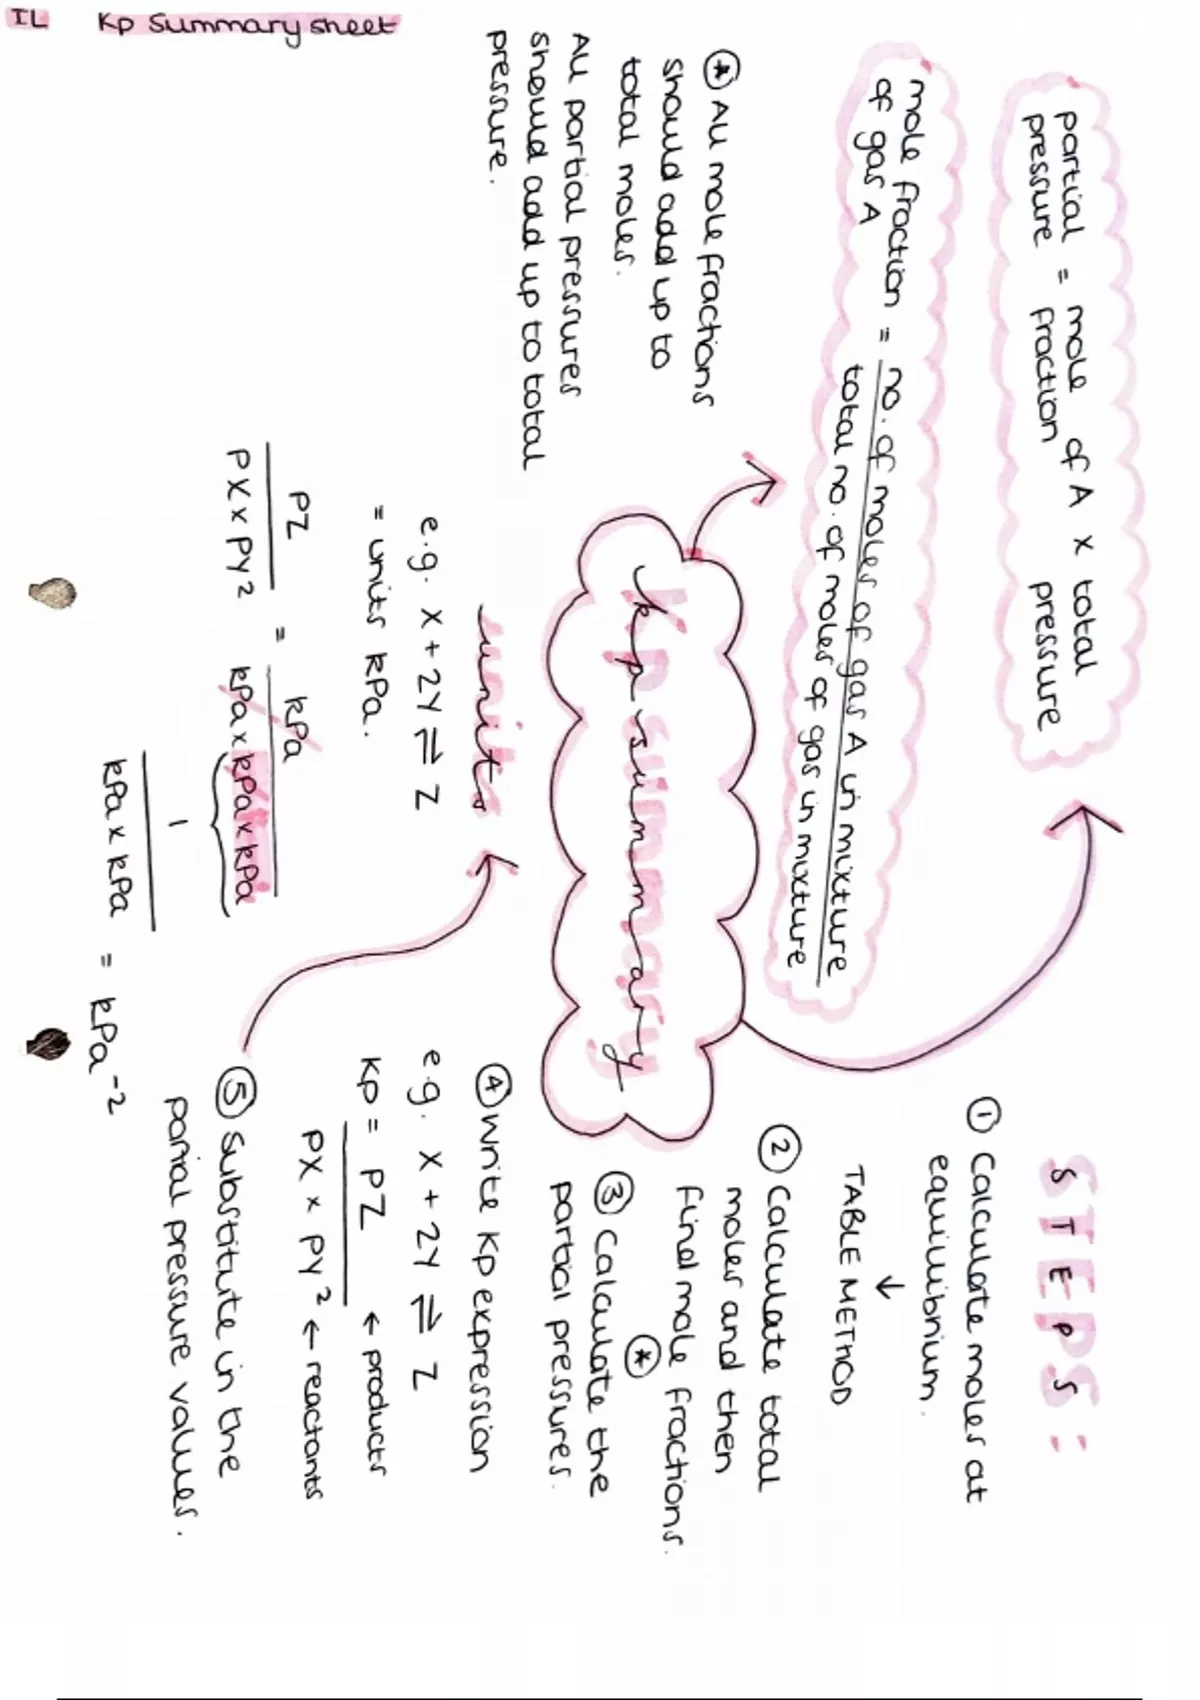 IL Kp summary sheet
partial = mole of A x total
pressure fraction pressure
mole fraction = no. of moles of gas A in mixture
of gas A total no. of moles of gas in mixture
* All mole fractions
should add up to
total moles.
All partial pressures
should add up to total
pressure.
Kp summary
units
e.g. X + 2Y ⇌ Z
= units kPa.
PZ = kPa
PX x PY² kPa x kPa x kPa
1
kPa x kPa = kPa⁻²
STEPS:
① Calculate moles at
equilibrium.
↓
TABLE METHOD
② Calculate total
moles and then
find mole fractions.
*
③ Calculate the
partial pressures.
④ Write Kp expression
e.g. X + 2Y ⇌ Z
Kp = PZ ← products
PX x PY² ← reactants
⑤ Substitute in the
partial pressure values.